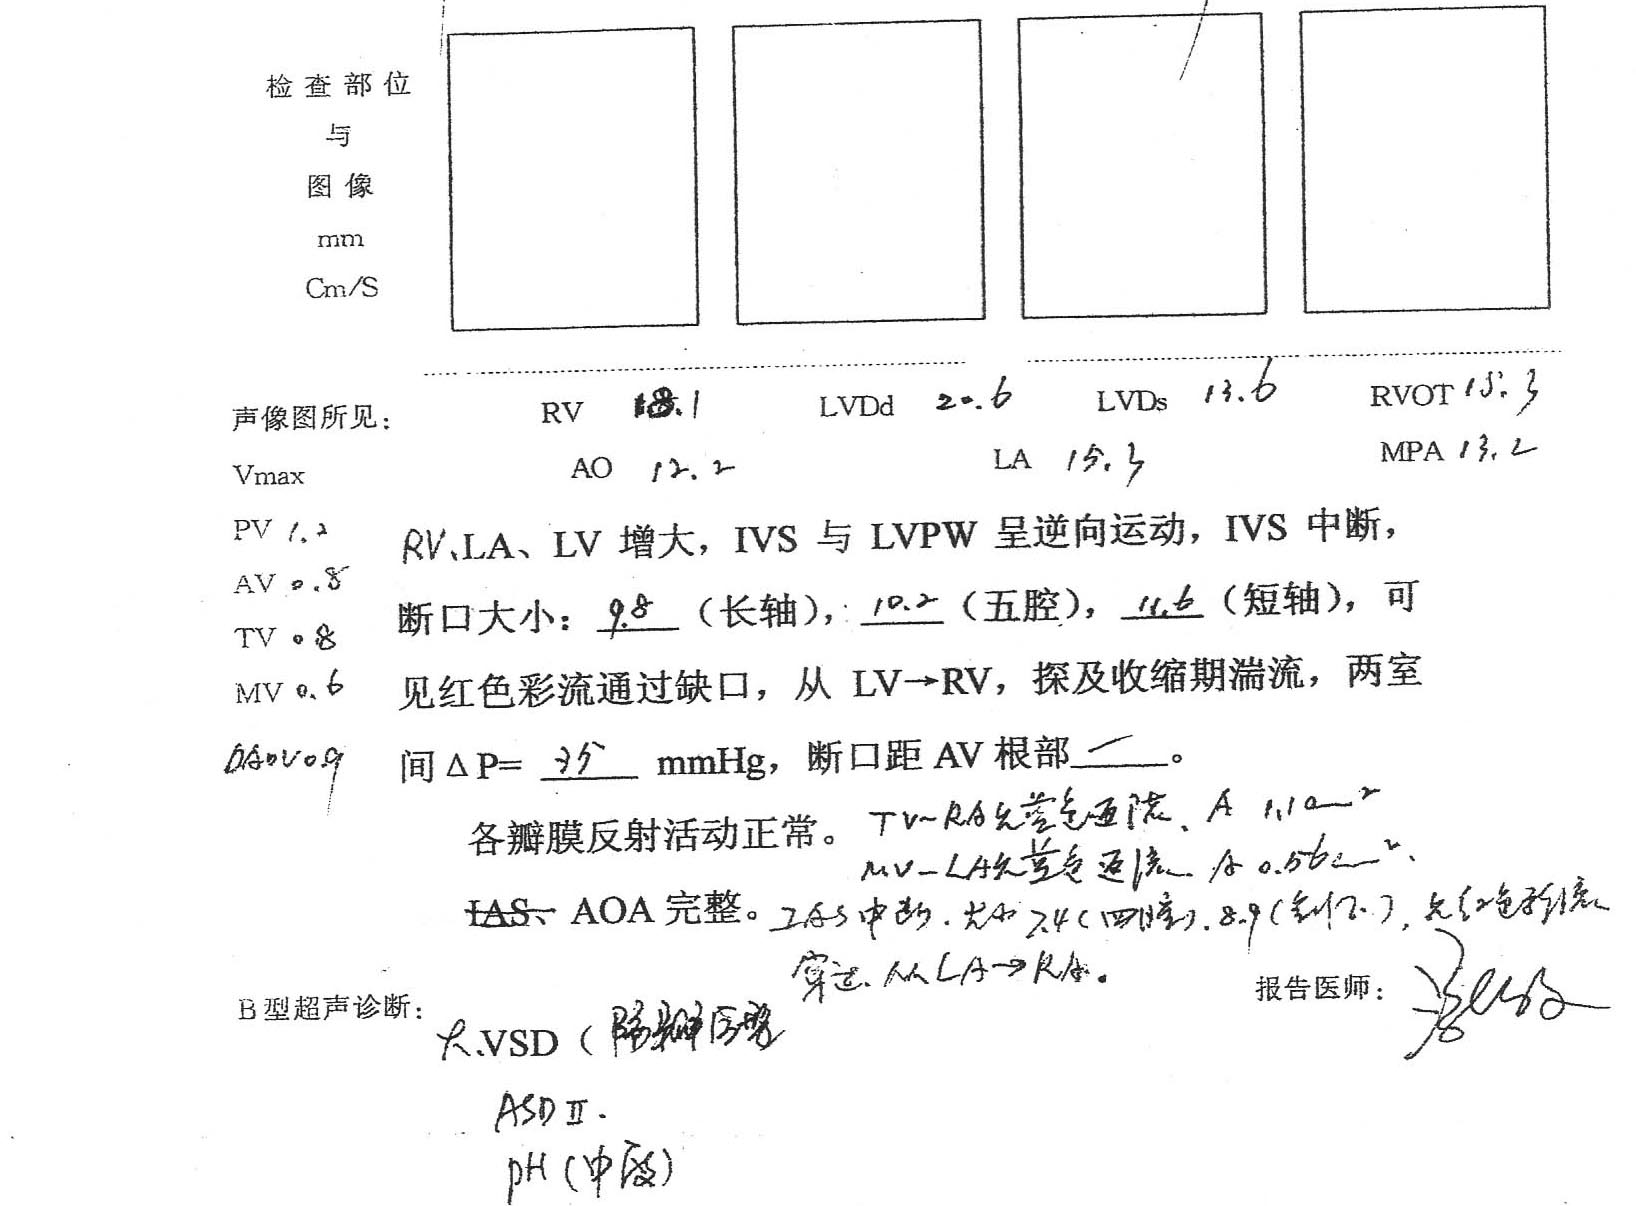 检查部位
与
图像
mm
Cm/S
声像图所见: RV 18.1 LVDd 20.6 LVDs 13.6 RVOT 15.3
Vmax AO 12.2 LA 15.3 MPA 13.2
PV 1.2
AV 0.8
TV 0.8
MV 0.6
DAOV 0.9
RV、LA、LV 增大，IVS 与 LVPW 呈逆向运动，IVS 中断，
断口大小: 9.8 （长轴），10.2（五腔），11.6（短轴），可
见红色彩流通过缺口，从 LV→RV，探及收缩期湍流，两室
间ΔP= 35 mmHg，断口距 AV 根部 。
各瓣膜反射活动正常。TV-RA 见蓝色返流、A 1.1cm²
MV-LA见蓝色返流 A 0.56cm².
IAS、AOA 完整。IAS中断.大小 7.4(四腔).8.9(剑下),见红色彩流
穿过、从LA→RA。
报告医师:
B型超声诊断:
大.VSD（隔瓣
ASD II.
PH(中度)